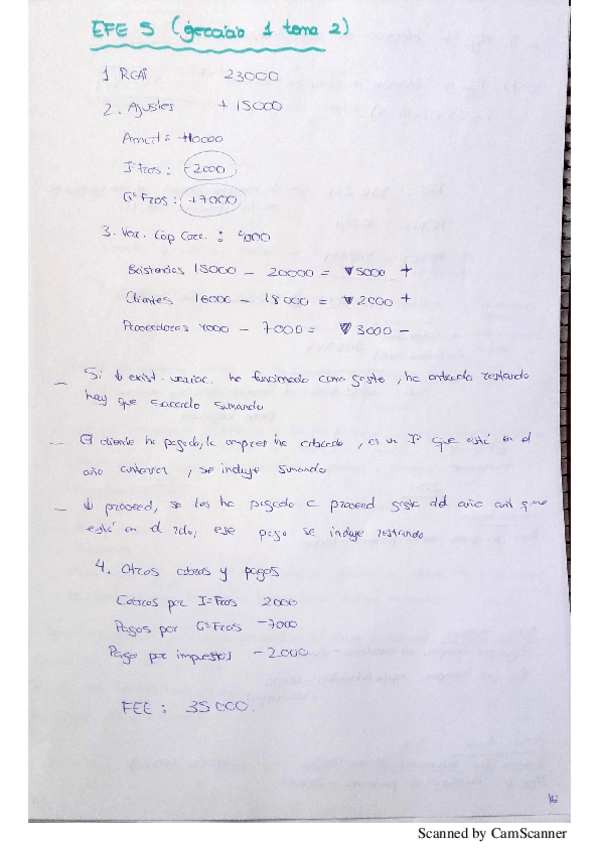 EFE S (ejercicio 1 tema 2)
1 RCAI 23000
2. Ajustes + 15000
Amort = +10000
Iº Fros: -2000
Gº Fros: +7000
3. Var. Cap Corr. : 4000
Existencias 15000 - 20000 = ▼5000 +
Clientes 16000 - 18000 = ▼2000 +
Proveedores 4000 - 7000 = ▼ 3000 -
— Si ↓ exist. variac. ha funcionado como gasto, ha entrado restando
hay que sacarlo sumando
— El cliente ha pagado, la empresa ha cobrado, es un Iº que está en el
año anterior, se incluye sumando
— ↓ proveed, se les ha pagado a proveed gasto del año ant que
está en el rdo, ese pago se incluye restando
4. Otros cobros y pagos
Cobros por Iº Fros 2000
Pagos por Gº Fros -7000
Pago por impuestos -2.000
FEE: 35000.
16
Scanned by CamScanner